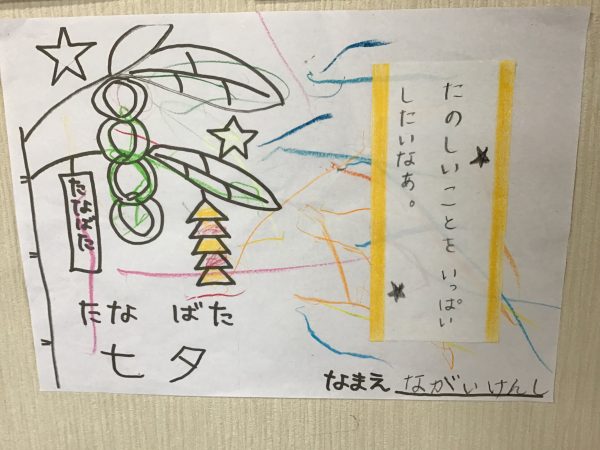 たのしいことを いっぱい
したいなあ。
たなばた
たなばた
七夕
なまえ ながいけんし